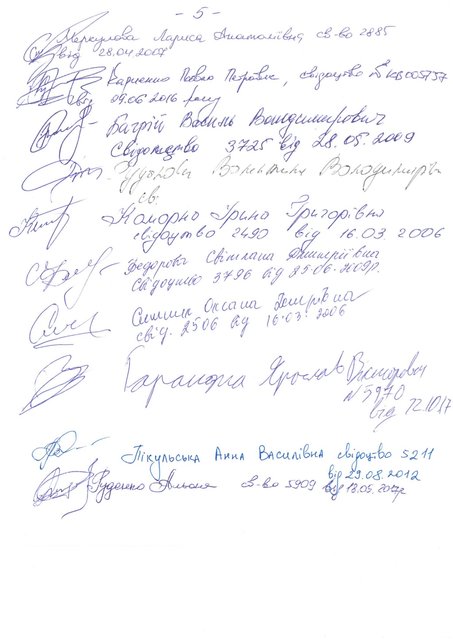 - 5 -
Меркулова Лариса Анатоліївна св-во 2885
від 28.04.2007
Карпенко Павло Петрович, свідоцтво № КВ005757
від 09.06.2016 року
Багрій Василь Володимирович
Свідоцтво 3725 від 28.05.2009
Валентина Володимирівна
св.
Комарно Ірина Григорівна
свідоцтво 2490 від 16.03.2006
Федорова Світлана Дмитріївна
Свідоцтво 3796 від 25.06.2009р.
Оксана Дмитрівна
свід. 2506 від 16.03.2006
Ярослав Вікторович
N 5970
від 12.10.17
Пікульська Анна Василівна свідоцтво 5211
від 29.08.2012
Руденко Альона св-во 5909 від 18.05.2017р